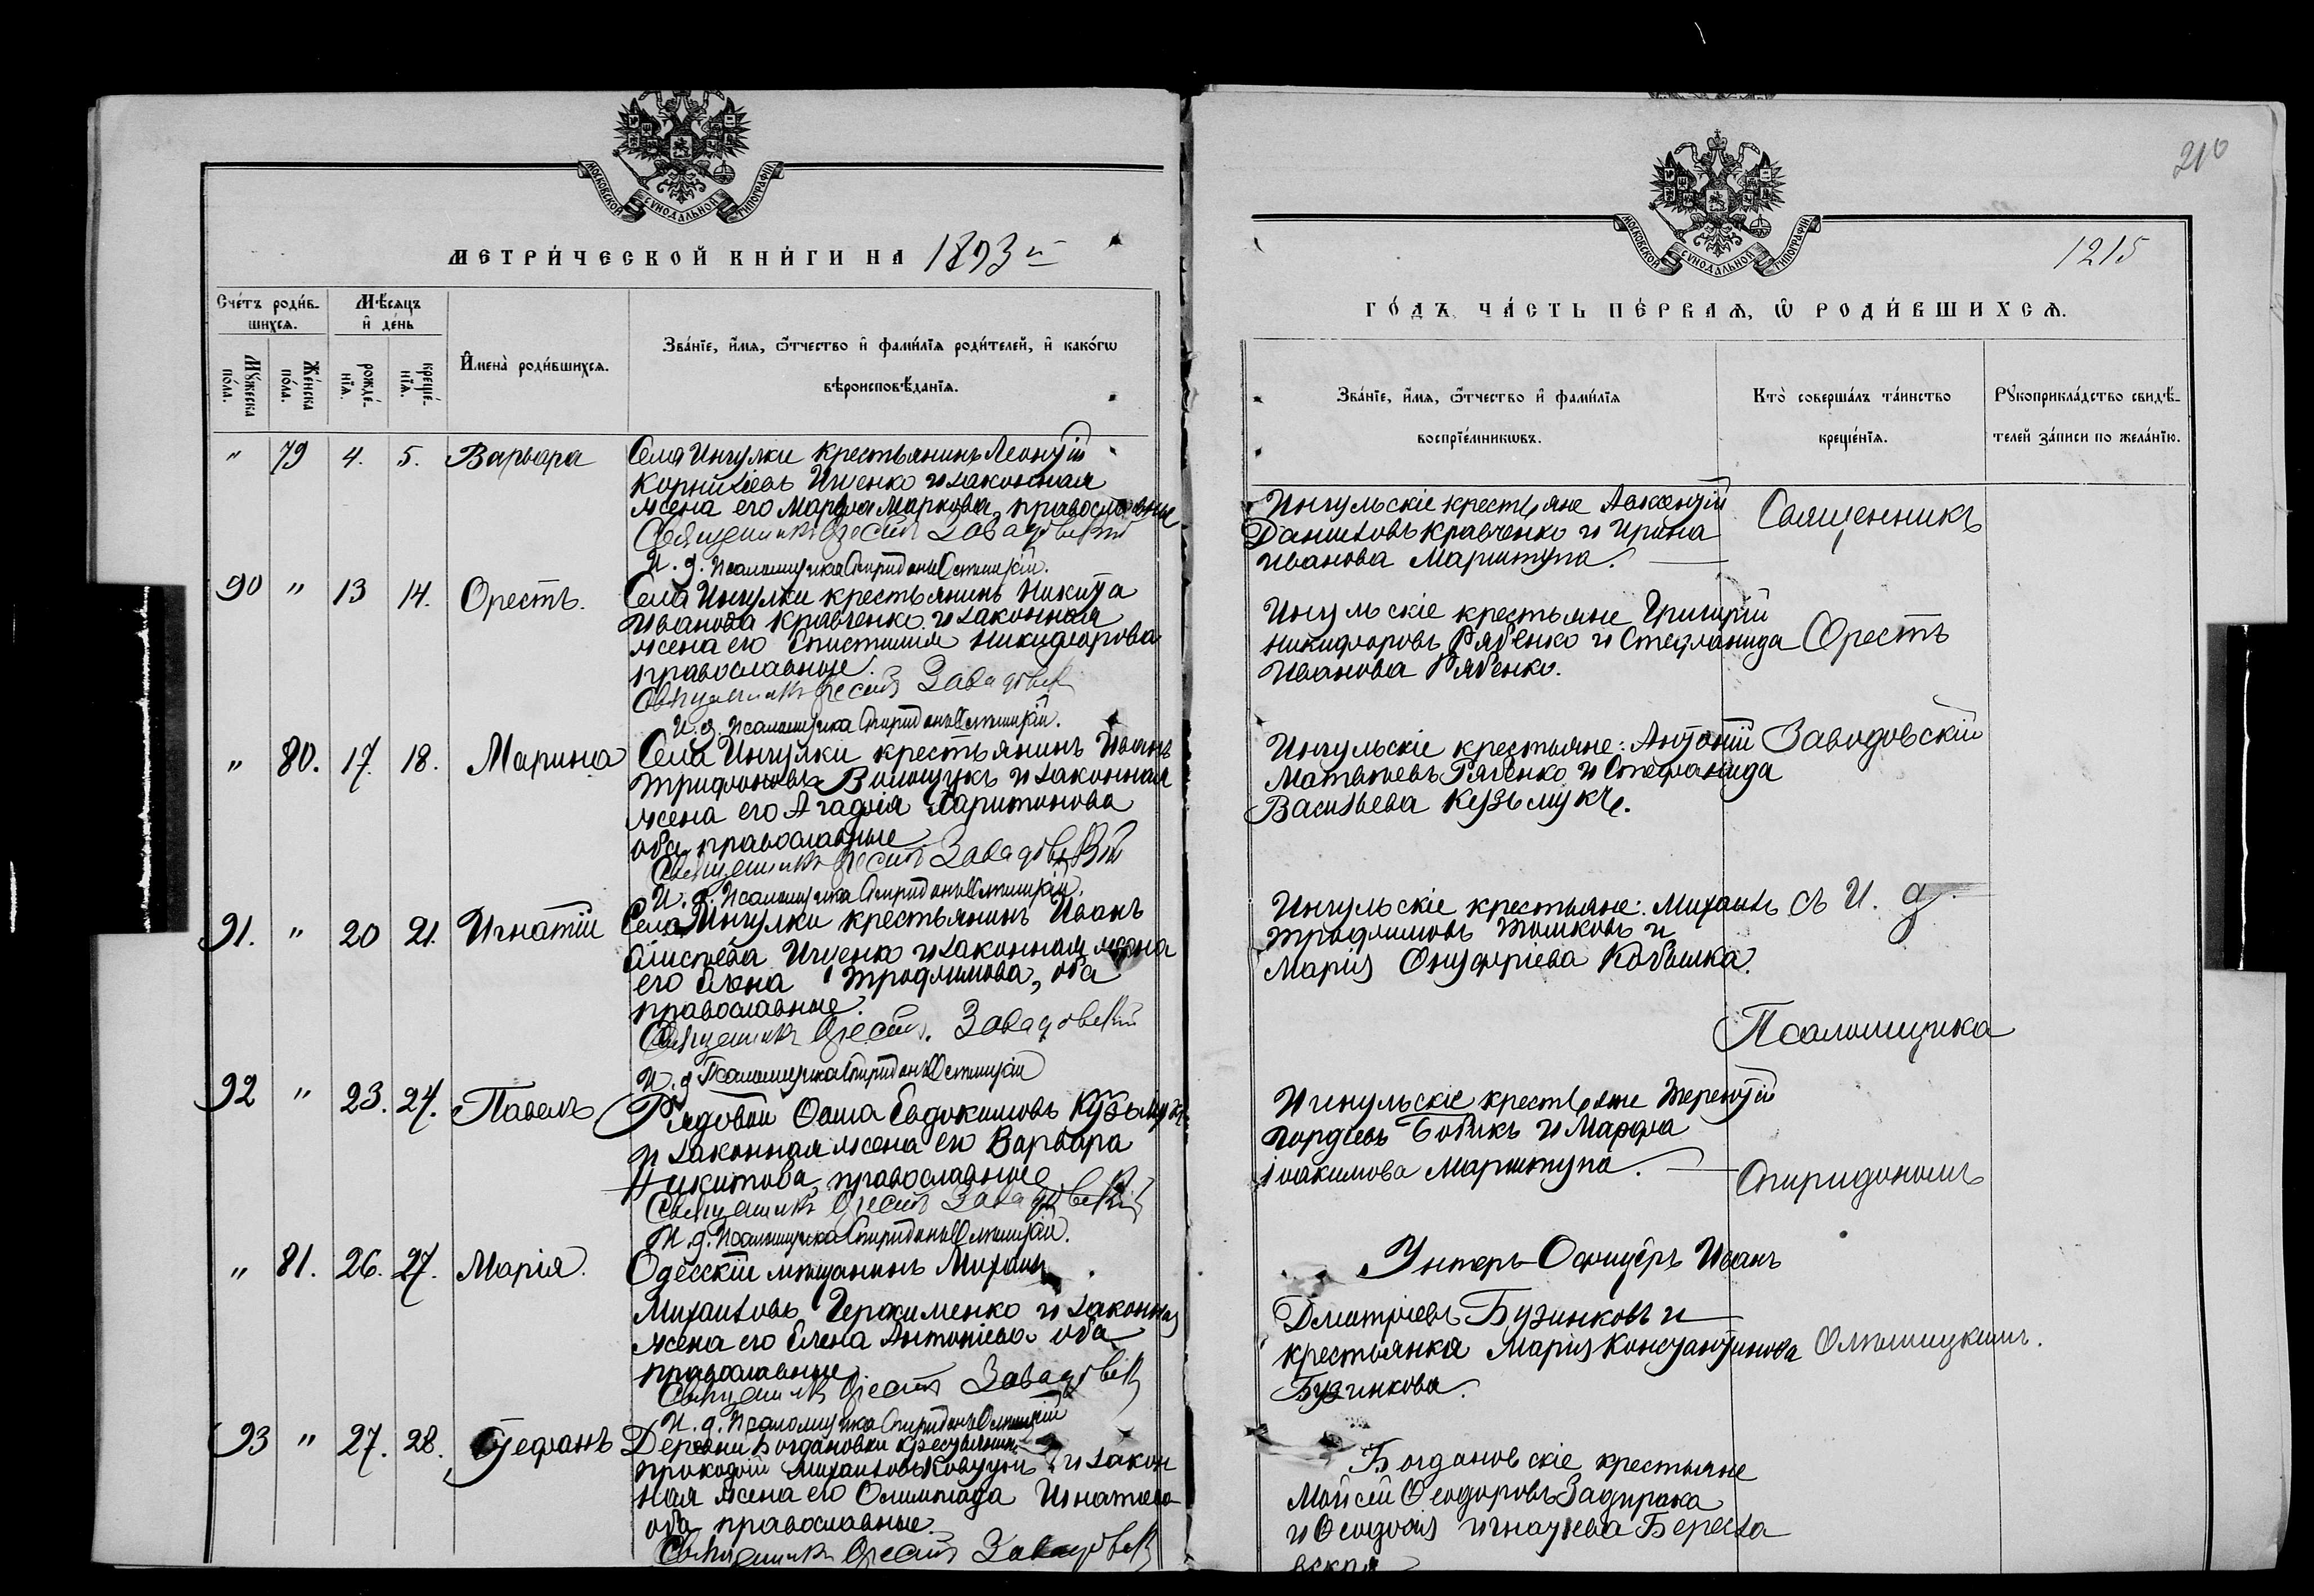 МОСКОВСКОЙ СѴНОДАЛЬНОЙ ТИПОГРАФІИ.
МЕТРИ́ЧЕСКОЙ КНИ́ГИ НА 1893 й
Сче́тъ роди́в-
шихсѧ.
Мѣ́сѧцъ
и҆ де́нь
Мꙋ́жеска
по́ла.
Же́нска
по́ла.
рожде́-
нїѧ.
креще́-
нїѧ.
И҆мена̀ роди́вшихсѧ.
Зва́нїе, и҆́мѧ, ѻ҆́тчество и҆ фами́лїѧ роди́телей, и҆ како́гѡ
вѣроисповѣ́данїѧ.
" 79 4. 5. Варвара Села Ингулки крестьянинъ Леонтій
Корниліевъ Ищенко и законная
жена его Марфа Маркова, православные
Священникъ Орестъ Завадовскій
И. д. Псаломщика Спиридонъ Олтшицкій.
90 " 13 14. Орестъ. Села Ингулки крестьянинъ Никита
Иванова Кравченко и законная
жена его Никифорова
православные.
Священникъ Орестъ Завадовскій
И. д. Псаломщика Спиридонъ
" 80. 17. 18. Марина Села Ингулки крестьянинъ Иванъ
Трифоновъ Волощукъ и законная
жена его Агафія Харитонова
оба православные
Священникъ Орестъ Завадовскій
И. д. Псаломщика Спиридонъ
91. " 20 21. Игнатій Села Ингулки крестьянинъ Иванъ
Ищенко и законная жена
его Елена Трофимова, оба
православные.
Священникъ Орестъ Завадовскій
И. д. Псаломщика Спиридонъ
92 " 23. 24. Павелъ Рядовой Ѳома Евдокимовъ Кузьмукъ
и законная жена его Варвара
Никитова, православные
Священникъ Орестъ Завадовскій
И. д. Псаломщика Спиридонъ
" 81. 26. 27. Марія. Одесскій мѣщанинъ Михаилъ
Михаиловъ Герасименко и законная
жена его Елена Антоніева оба
православные
Священникъ Орестъ Завадовскій
И. д. Псаломщика Спиридонъ
93 " 27. 28. Стефанъ Деревни Богдановки крестьянинъ
Прокофій Михаиловъ Ковтунъ и закон
ная жена его Олимпіада Игнатіева
оба православные.
Священникъ Орестъ Завадовскій
210
МОСКОВСКОЙ СѴНОДАЛЬНОЙ ТИПОГРАФІИ.
1215
ГО́ДЪ ЧА́СТЬ ПЕ́РВАѦ, Ѡ҆ РОДИ́ВШИХСѦ.
Зва́нїе, и҆́мѧ, ѻ҆́тчество и҆ фами́лїѧ
воспрїе́мникѡвъ.
Кто̀ соверша́лъ та́инство
креще́нїѧ.
Рꙋкоприкла́дство свидѣ́-
телей за́писи по жела́нїю.
Ингульскіе крестьяне Авксентій
Даниловъ Кравченко и Ирина
Иванова Мариштупа.
Священникъ
Ингульскіе крестьяне Григорій
Никифоровъ Рябенко и Стефанида
Иванова Рябенко.
Орестъ
Ингульскіе крестьяне: Антоній
Матвѣевъ Рябенко и Стефанида
Васильева Кузьмукъ.
Заводовскій
Ингульскіе крестьяне: Михаилъ
Трофимовъ Томковъ и
Марія Онуфріева Кобышка.
съ И. д.
Псаломщика
Ингульскіе крестьяне Терентій
Гордіевъ Бобикъ и Марфа
Іоакимова Мариштупа.
Спиридономъ
Унтеръ-Офицеръ Иванъ
Дмитріевъ Бузинковъ и
крестьянка Марія Константинова
Бузинкова.
Богдановскіе крестьяне
Мойсей Ѳеодоровъ Задирака
и Ѳеодосія Игнатіева Береза
вская